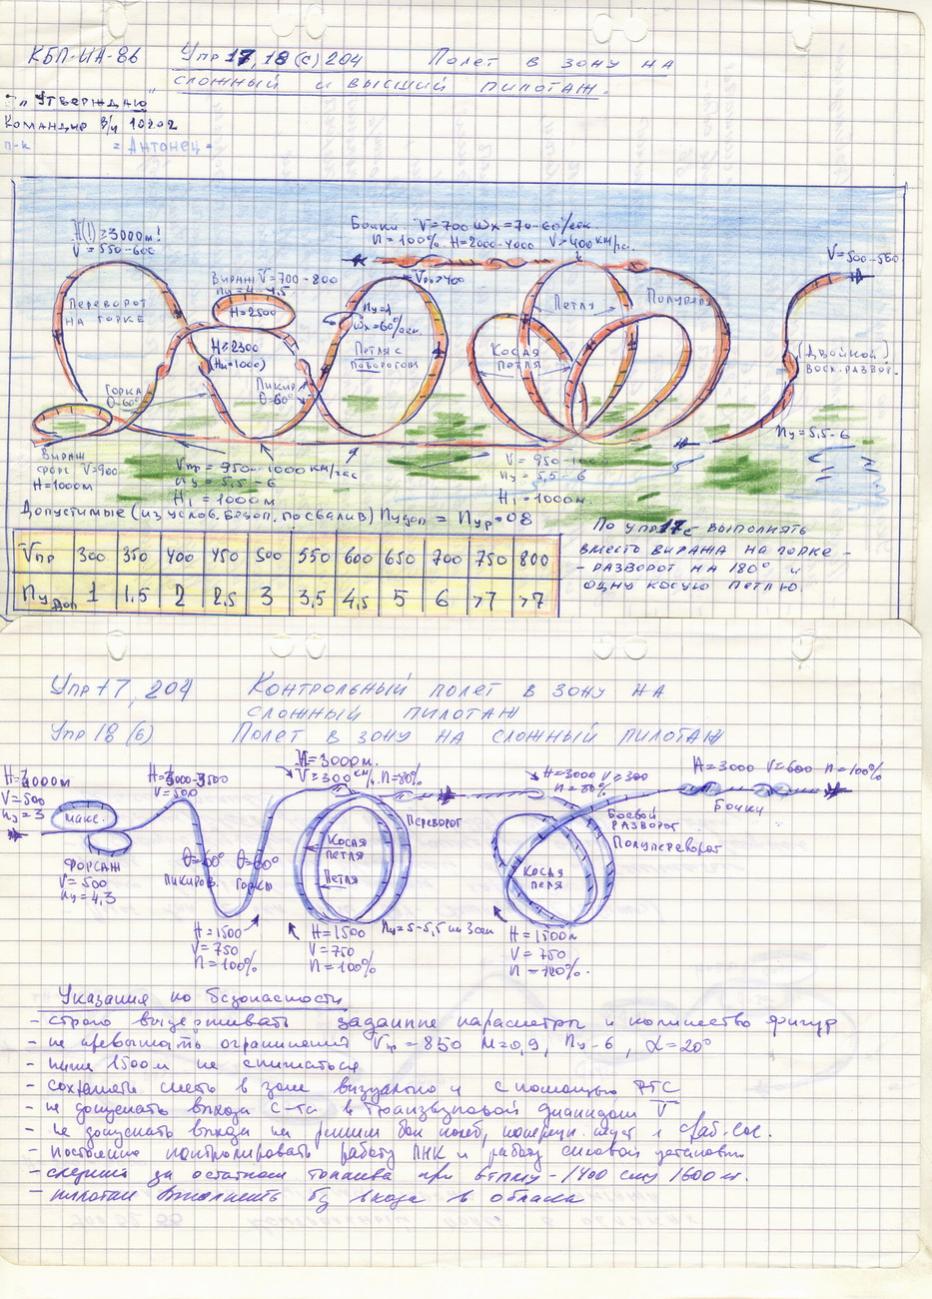 КБП-ИА-86 Упр 17, 18 (с) 204 Полет в зону на
сложный и высший пилотаж.
"Утверждаю"
Командир в/ч 10202
п-к = Антонец =
H(1) = 3000м!
V = 550-600
Переворот
на горке
Вираж V=700-800
H=2500
Бочки V=700 ωx=70-60°/сек
n=100% H=2000-4000 V>400 км/час.
V=500-560
H=2300
(Hн=1000)
ny=1
ωx=60°/сек
Петля с
поворотом
Петля
Косая
петля
(Двойной)
восх. развор.
Горка
θ=60°
Пикир
θ=60°
ny=5,5-6
Вираж
форс V=900
H=1000м
Vпр = 950-1000 км/час
ny = 5,5-6
H1 = 1000м
ny = 5,5-6
H1 = 1000м.
Допустимые (из услов. безоп. по свалив) nyдоп = nyр-0,8
По упр 17с выполнять
вместо виража на горке -
- разворот на 180° и
одну косую петлю.
Vпр 300 350 400 450 500 550 600 650 700 750 800
nyдоп 1 1,5 2 2,5 3 3,5 4,5 5 6 >7 >7
Упр 17, 204 Контрольный полет в зону на
сложный пилотаж
Упр 18 (б) Полет в зону на сложный пилотаж
V=500
ny=3
макс.
форсаж
V=500
ny=4,3
V=500
θ=60°
пикиров.
θ=60°
горка
H=1500
V=750
n=100%
H=3000м.
V=300 км/ч. n=80%
Переворот
Косая
петля
Петля
H=1500
V=750
n=100%
H=3000 V=300
n=80%
H=3000 V=600 n=100%
Бочки
Боевой
разворот
Полупереворот
Косая
петля
H=1500м
V=750
n=100%.
Указания по безопасности
- строго выдерживать заданные параметры и количество фигур
- не превышать ограничений Vпр = 850 M=0,9, ny-6, α=20°
- ниже 1500м не снижаться
- сохранять место в зоне визуально и с помощью РТС
- не допускать выхода с-та в трансзвуковой диапазон V
- постоянно контролировать работу ПНК и работу силовой установки
- следить за остатком топлива
- пилотаж выполнять без входа в облака